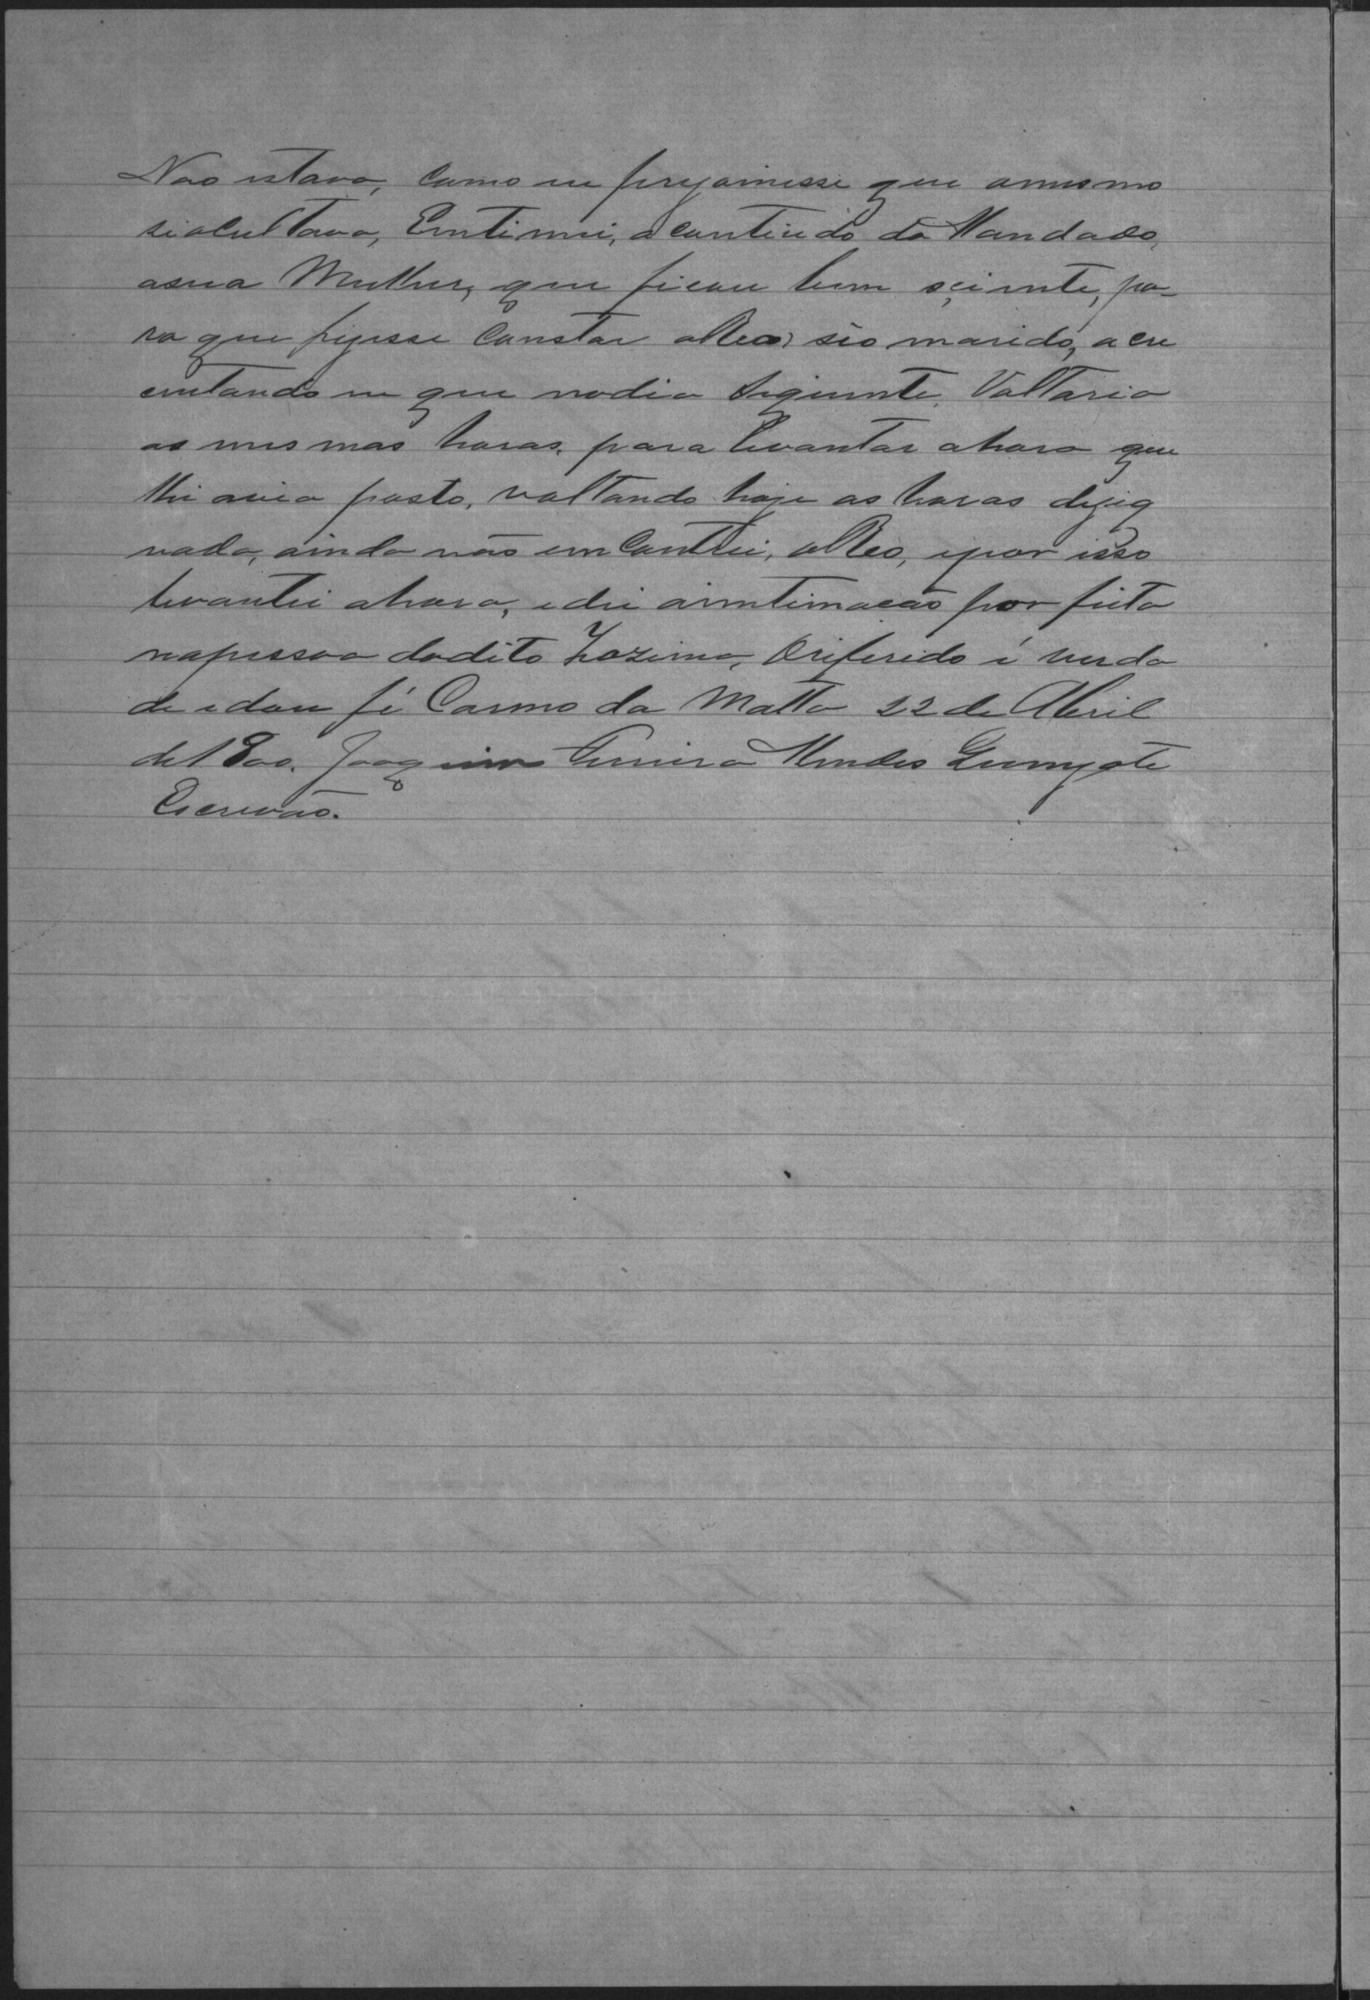 Não estava, Como eu prezomisse que omesmo
siocultava, Entimei, o contiudo do Mandado,
asua Mulher, que ficou bem sciente, pa-
ra que fizesse Constar oReo, sêo marido, acre
centando eu que nodia siguinte, Voltaria
as mesmas horas, para levantar ahora que
lhi avia posto, voltando hoje as horas dizig
nada, ainda não emContrei, oReo, epor isso
levantei ahora, edei aintimacão por feita
napessoa dodito Zozimo, Oriferido é verda
de edou fé Carmo da Matta 22 de Abril
de1800. Joaquim Ferreira Mendes
Escrivão.